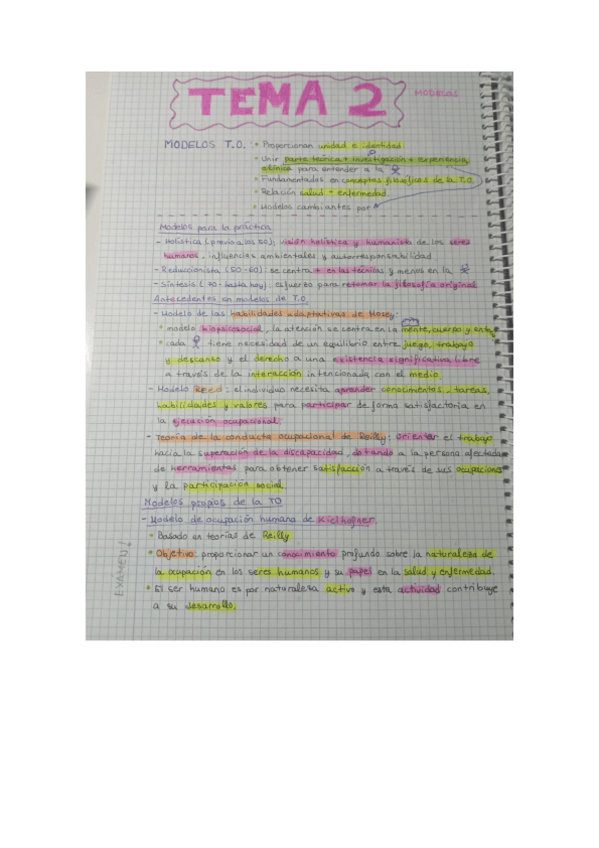 TEMA 2
MODELOS
MODELOS T.O.: • Proporcionan unidad e identidad
• Unir parte teórica + investigación + experiencia
clínica para entender a la
• Fundamentados en conceptos filosóficos de la T.O.
• Relación salud - enfermedad
• Modelos cambiantes por
Modelos para la práctica
- Holística (previo a los 50): visión holística y humanista de los seres
humanos, influencias ambientales y autorresponsabilidad.
- Reduccionista (50-60): se centra + en las técnicas y menos en la
- Síntesis (70- hasta hoy): esfuerzo para retomar la filosofía original
Antecedentes en modelos de T.O.
- Modelo de las habilidades adaptativas de Mosey:
• modelo biopsicosocial, la atención se centra en la mente, cuerpo y ento
• cada tiene necesidad de un equilibrio entre juego, trabajo
y descanso y el derecho a una existencia significativa libre
a través de la interacción intencionada con el medio.
- Modelo Reed: el individuo necesita aprender conocimientos, tareas,
habilidades y valores para participar de forma satisfactoria en
la ejecución ocupacional.
- Teoría de la conducta ocupacional de Reilly: orientar el trabajo
hacia la superación de la discapacidad, dotando a la persona afectada
de herramientas para obtener satisfacción a través de sus ocupaciones
y la participación social.
Modelos propios de la TO
- Modelo de ocupación humana de Kielhofner
• Basado en teorías de Reilly
• Objetivo: proporcionar un conocimiento profundo sobre la naturaleza de
la ocupación en los seres humanos y su papel en la salud y enfermedad.
• El ser humano es por naturaleza activo y esta actividad contribuye
a su desarrollo.
EXAMEN!